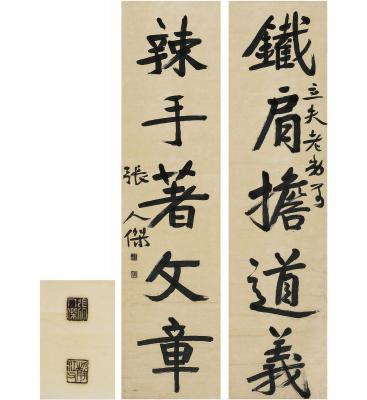 鐵肩擔道義
立夫老
辣手著文章
張人傑